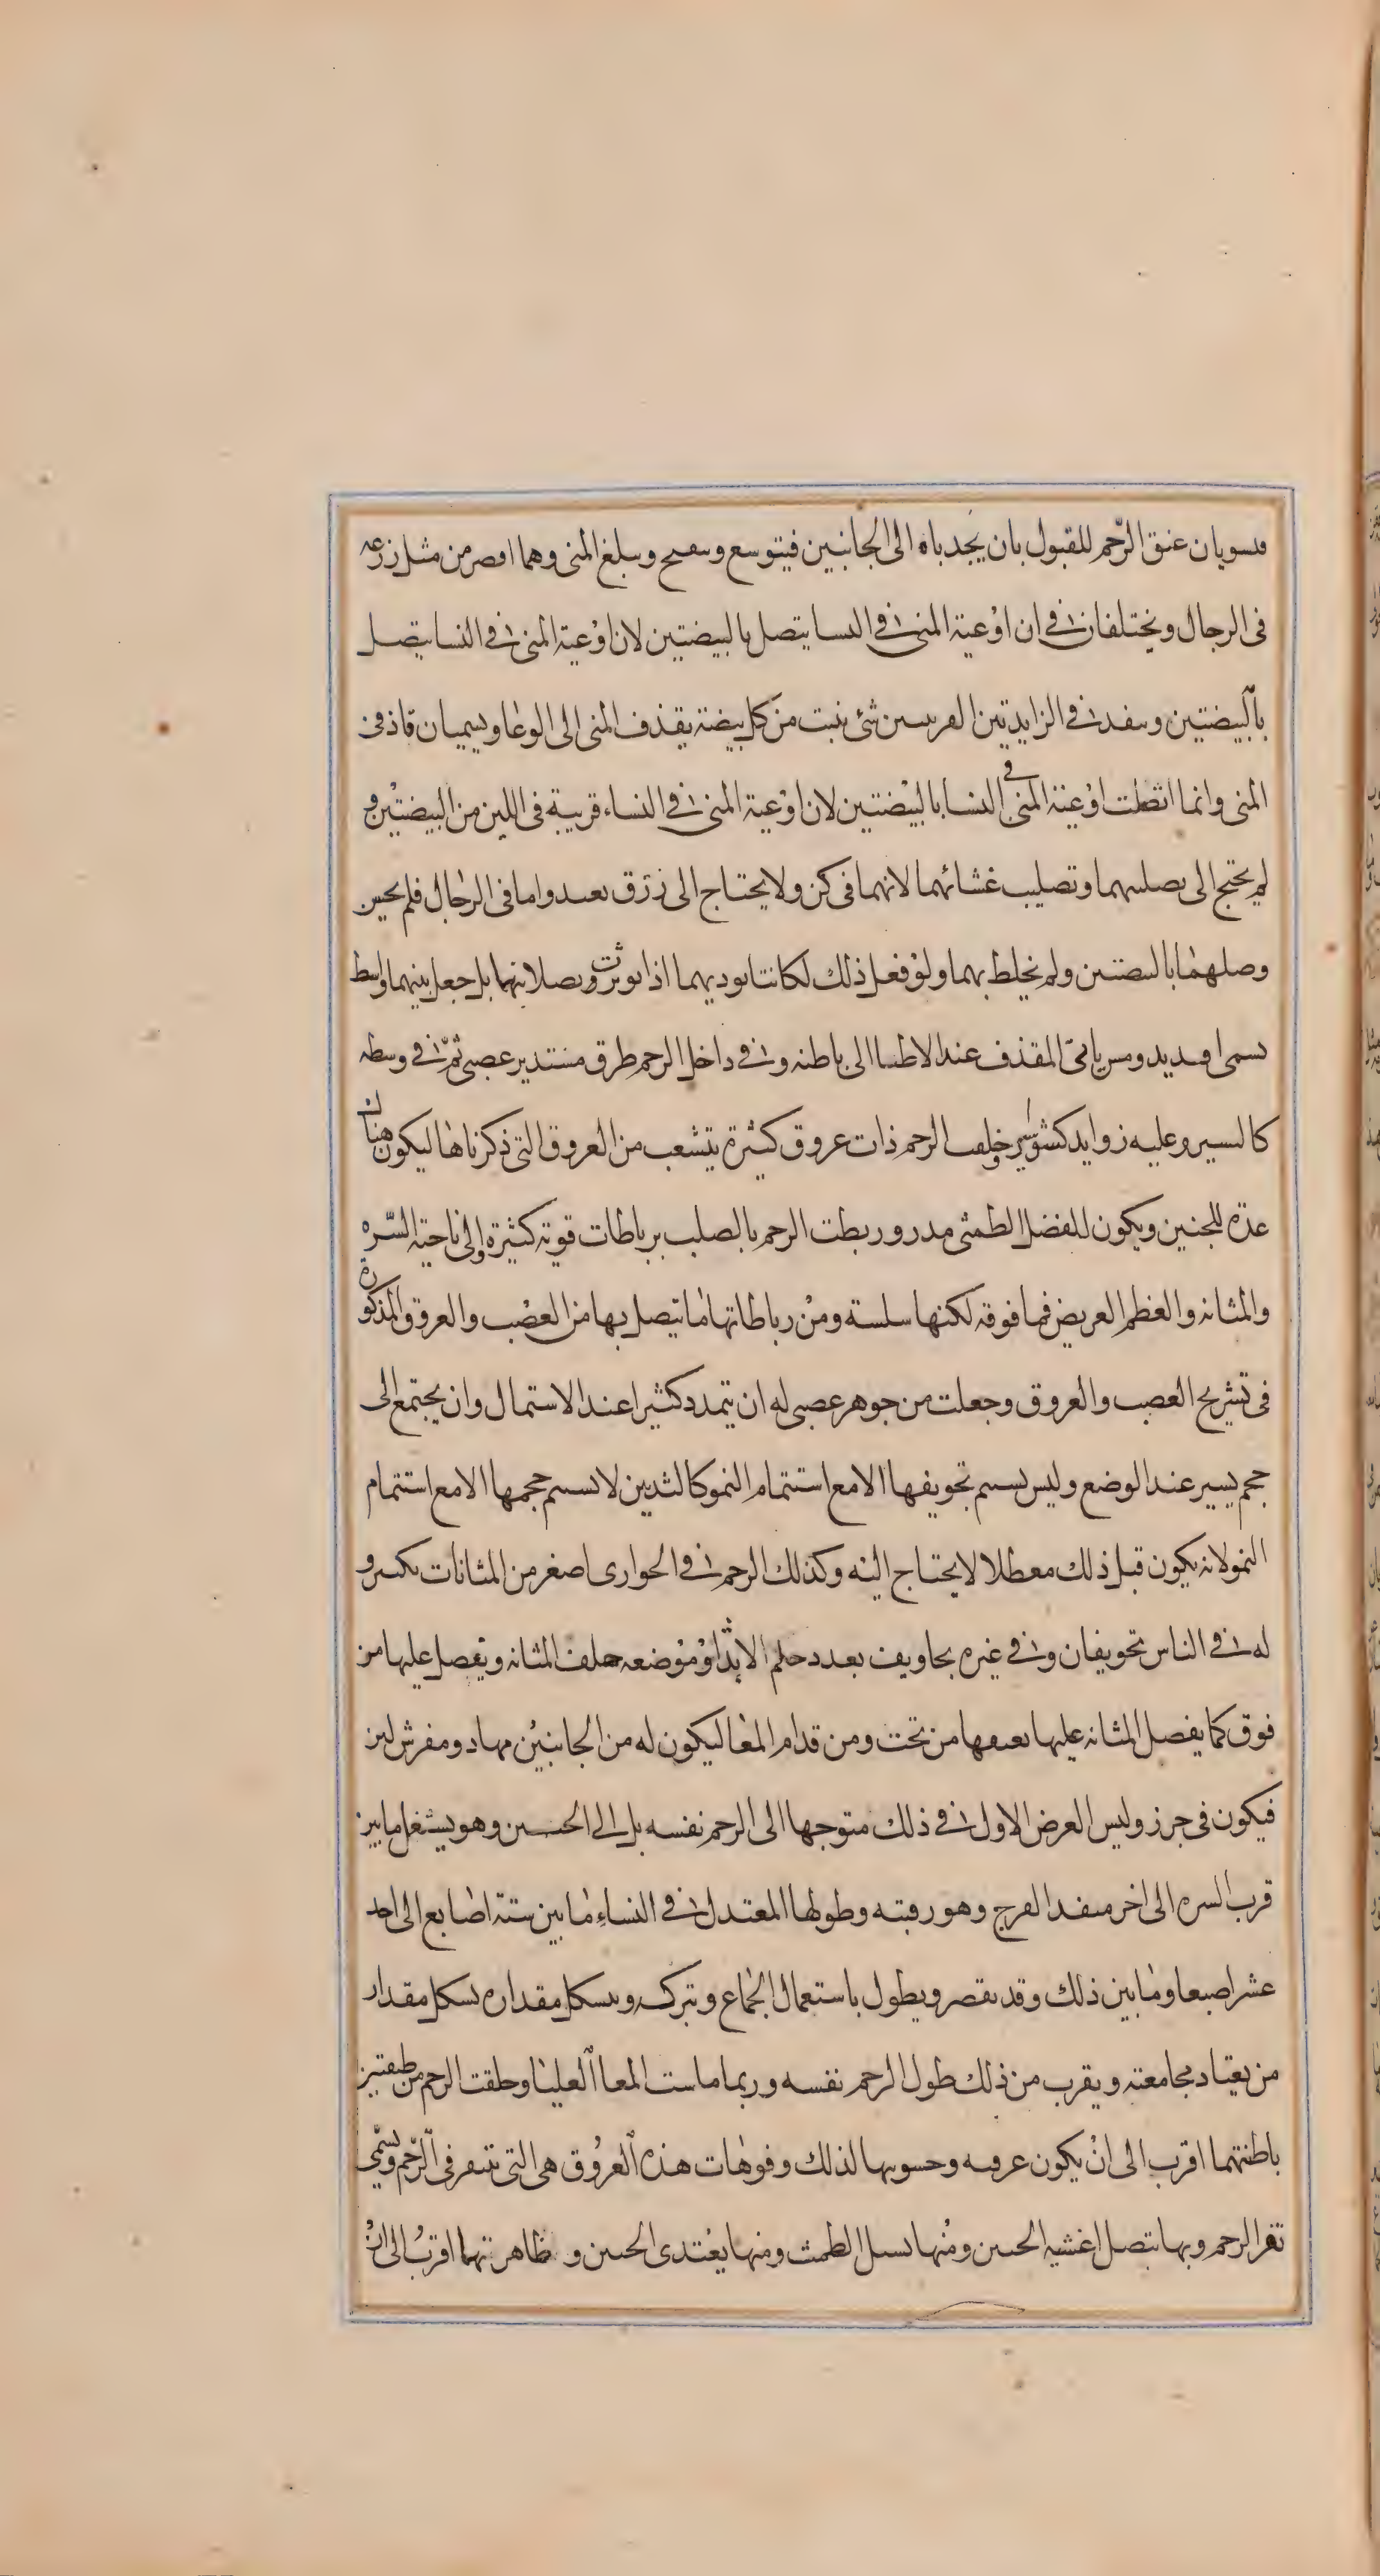 فيسويان عنق الرّحم للقبول بان يجدباه الى الجانبين فيتوسع وينفتح ويبلغ المنى وهما اقصر من مثل زرعه
فى الرجال ويختلفان فى ان اوعية المنى فى النسا يتصل بالبيضتين لان اوعية المنى فى النسا يتصل
بالبيضتين وينفد فى الزايدتين القرنيتين شئ ينبت من كل بيضة يقذف المنى الى الوعا ويسميان قاذفى
المنى وانما اتصلت اوعية المنى فى النسا بالبيضتين لان اوعية المنى فى النساء قريبة فى اللين من البيضتين و
لم يحتج الى تصليبهما وتصليب غشائهما لانهما فى كن ولا يحتاج الى زرق بعيد واما فى الرجال فلم يحسن
وصلهما بالبيضتين ولم يخلط بهما ولو فعل ذلك لكانتا توديهما اذا توترت وبصلابتهما بل جعل بينهما واسط
يسمى افديديومس ياتى المقذف عند الاطبا الى باطنه وفى داخل الرحم طرق مستدير عصبى ثم فى وسطه
كالسير وعليه زوايد كثيرة وخلف الرحم ذات عروق كثيرة يتشعب من العروق التى ذكرناها ليكون هناك
عدّة للجنين ويكون للفضل الطمثى مدر وربطت الرحم بالصلب برباطات قوية كثيرة والى ناحية السّره
والمثانه والعظم العريض فما فوقه لكنها سلسة ومن رباطاتها ما يتصل بها من العصب والعروق المذكورة
فى تشريح العصب والعروق وجعلت من جوهر عصبى له ان يتمدد كثيرا عند الاستمال وان يجتمع الى
حجم يسير عند الوضع وليس يستتم تجويفها الا مع استتمام النمو كالثديين لا يستتم حجمها الا مع استتمام
النمو لانه يكون قبل ذلك معطلا لا يحتاج اليه وكذلك الرحم فى الجوارى اصغر من المثانات بكثير و
له فى الناس تجويفان وفى غيره تجاويف بعدد حلم الاثدا وموضعه خلف المثانه ويفصل عليها من
فوق كما يفصل المثانه عليها بعنقها من تحت ومن قدام المعا ليكون له من الجانبين مهاد ومفرش لين
فيكون فى حرز وليس الغرض الاول فى ذلك متوجها الى الرحم نفسه بل الى الجنين وهو يشغل ما بين
قرب السره الى اخر منفد الفرج وهو رقبته وطولها المعتدل فى النساء ما بين ستة اصابع الى احد
عشر اصبعا وما بين ذلك وقد يقصر ويطول باستعمال الجماع وتركه ويتشكل مقداره بشكل مقدار
من يعتاد مجامعته ويقرب من ذلك طول الرحم نفسه وربما ماست المعا العليا وخلقت الرحم من طبقتين
باطنتهما اقرب الى ان يكون عرقيه وخشونتها لذلك وفوهات هذه العروق هى التى تنقر فى الرّحم ويسمّى
نقر الرحم وبها يتصل اغشيه الجنين ومنها يسيل الطمث ومنها يغتدى الجنين و ظاهرتهما اقرب الى ان